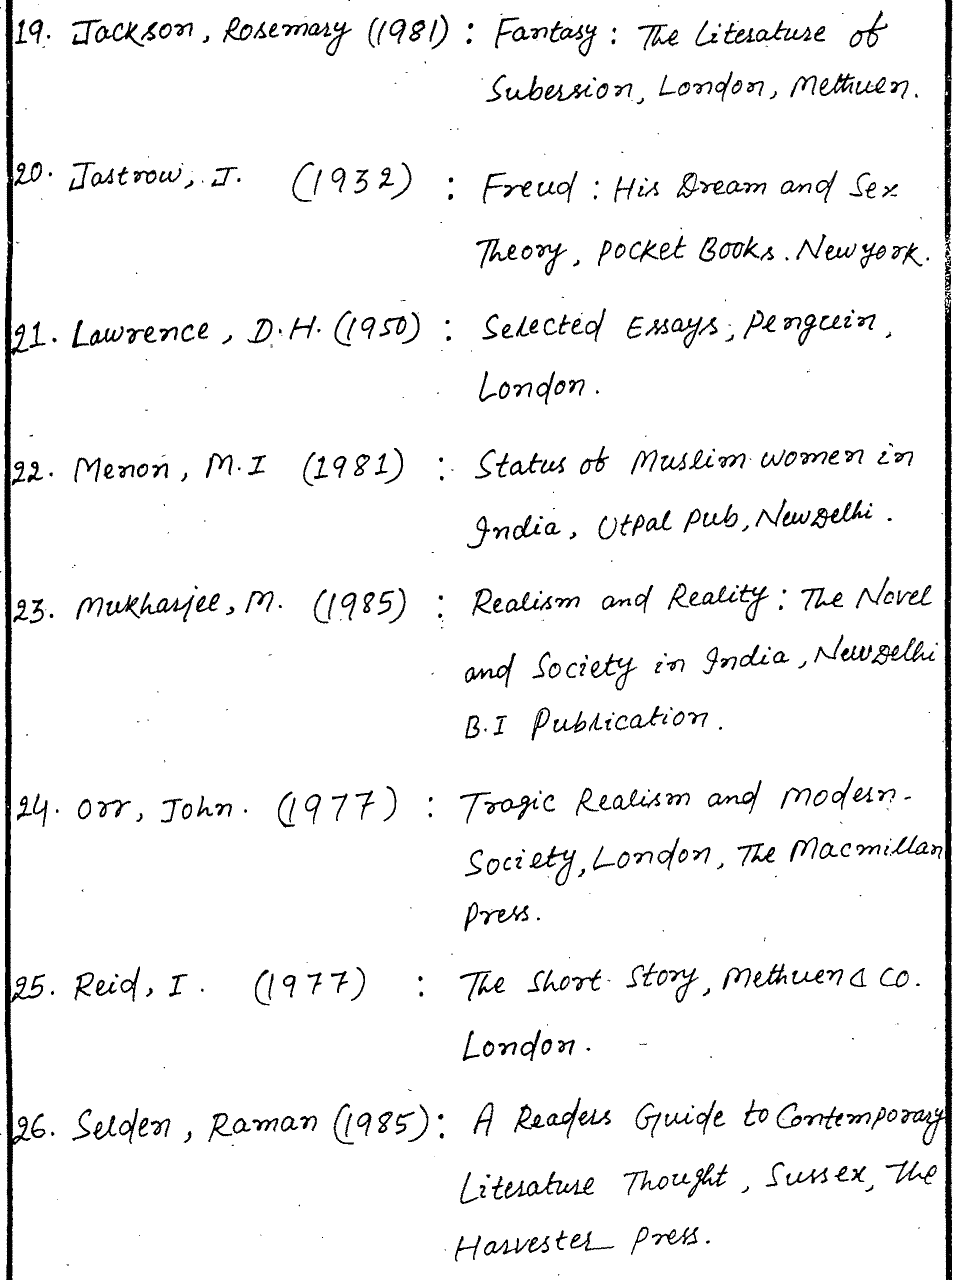 19. Jackson, Rosemary (1981) : Fantasy : The Literature of
Subersion, London, Methuen.
20. Jastrow, J. (1932) : Freud : His Dream and Sex
Theory, Pocket Books. Newyork.
21. Lawrence, D.H. (1950) : Selected Essays, Penguin,
London.
22. Menon, M.I (1981) : Status of Muslim women in
India, Utpal Pub, New Delhi.
23. Mukharjee, M. (1985) : Realism and Reality : The Novel
and Society in India, New Delhi
B.I Publication.
24. Orr, John. (1977) : Tragic Realism and Modern
Society, London, The Macmillan
Press.
25. Reid, I. (1977) : The Short Story, Methuen & Co.
London.
26. Selden, Raman (1985) : A Readers Guide to Contemporary
Literature Thought, Sussex, The
Harvester Press.